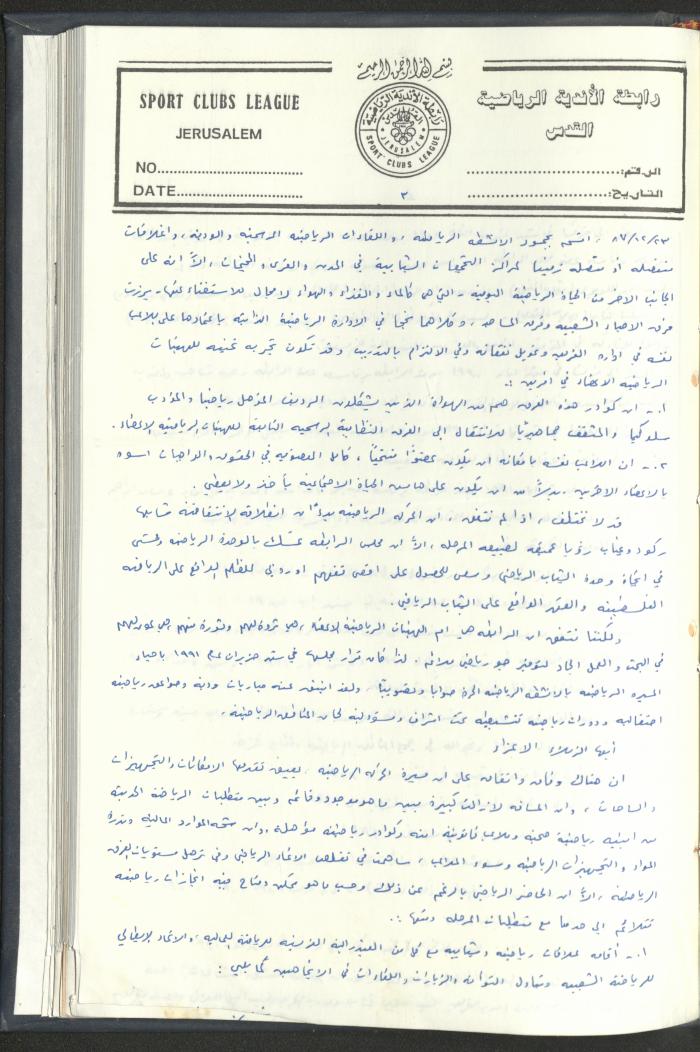 بسم الله الرحمن الرحيم
SPORT CLUBS LEAGUE
JERUSALEM
NO
DATE
رابطة الأندية الرياضية
القدس
رابطة الأندية الرياضية
القدس
JERUSALEM
SPORT CLUBS LEAGUE
الرقم:
التاريخ:
٣
٨٧/١٢/٢٣ ، اتسم بجمود الانشطه الرياضيه ، واللقاءات الرياضيه الرسميه والوديه ، واغلاقات
منفصله أو متصله زمنيا لمراكز التجمعات الشبابية في المدن والقرى والمخيمات ، الاّ انه على
الجانب الاخر من الحياة الرياضية اليومية ، التي هي كالماء والغذاء والهواء لا مجال للاستغناء عنها ، برزت
فرق الاحياء الشعبيه وفرق المساجد ، وكلاهما نجحا في الادارة الرياضية الذاتية باعتمادها على اللاعب
نفسه في اداره الفريق وتمويل نفقاته وفي الالتزام بالتدريب وقد تكون تجربه غنيه للهيئات
الرياضيه الاعضاء في امرين :.
١.- ان كوادر هذه الفرق هم من الهواة الذين يشكلون الرديف المؤهل رياضيا والمؤدب
سلوكيا والمثقف جماهيريا للانتقال الى الفرق النظامية الرسميه التابعة للهيئات الرياضيه الاعضاء .
٢.- ان اللاعب نفسه بامكانه ان يكون عضوًا منتميًا ، كامل العضويه في الحقوق والواجبات اسوه
بالاعضاء الاخرين ، بدلاً من ان يكون على هامش الحياة الاجتماعية يأخذ ولا يعطي .
قد لا نختلف ، اذا لم نتفق ، ان الحركه الرياضيه بدءًا من انطلاقة الانتفاضة شابها
ركود وغياب رؤيا عميقه لطبيعه المرحله ، الاّ ان مجلس الرابطه تمسك بالوحدة الرياضيه
في اتجاه وحدة الشباب الرياضي وسعى للحصول على اقصى تفهم اوروبي للظلم الواقع على الرياضه
الفلسطينيه والقهر الواقع على الشباب الرياضي .
ولكننا نتفق ان الرابطه هي ام الهيئات الرياضية الاعضاء ، هي منهم
في البحث والعمل الجاد لتوفير جو رياضي ملائم . لذا كان قرار مجلسها في حزيران عام ١٩٩١ باحياء
المسيره الرياضيه بالانشطه الرياضيه الحرة ولقد انبثق عنه مباريات وديه رياضيه
احتفاليه ودورات رياضيه تنشيطيه تحت اشراف ومسؤولية لجان المناطق الرياضية .
أيها الزملاء الاعزاء
ان هنالك وفاق واتفاق على ان مسيرة الحركه الرياضيه ، يعيق تقدمها الامكانات والتجهيزات
والساحات ، وان المسافه لا زالت كبيرة بين ما هو موجود وقائم وبين متطلبات الرياضة الحديثة
من ابنيه رياضية صحية وملاعب قانونية امنه وكوادر رياضيه مؤهله وان شحه الموارد الماليه وندرة
المواد والتجهيزات الرياضيه وسوء الملاعب ، ساهمت في تقلص الاتحاد الرياضي وفي ترهل مستويات الفرق
الرياضيه ، الاّ ان الحاضر الرياضي بالرغم عن ذلك وحسب ما هو ممكن ومتاح فيه انجازات رياضيه
تتلائم الى حد ما مع متطلبات المرحله ومنها :.
١.- اقامه علاقات رياضيه وشبابيه مع كل من الفيدراليه الفرنسيه للرياضه العماليه ، والاتحاد الايطالي
للرياضة الشعبيه وتبادل التوأمة والزيارات واللقاءات في الاتجاهين كما يلي :